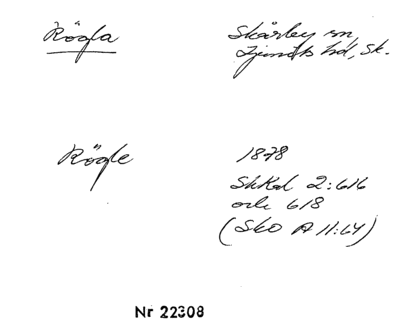 Rögla
Skårby sn,
Ljunits hd, Sk.
Rögle
1878
SkRd 2:616
och 618
(SkO A 11:64)
Nr 22308